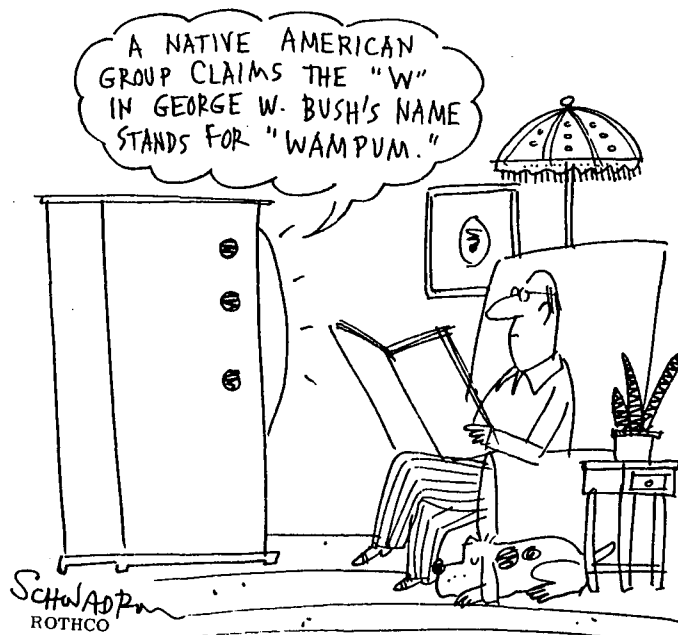 A NATIVE AMERICAN
GROUP CLAIMS THE "W"
IN GEORGE W. BUSH'S NAME
STANDS FOR "WAMPUM."
SCHWADRON
ROTHCO